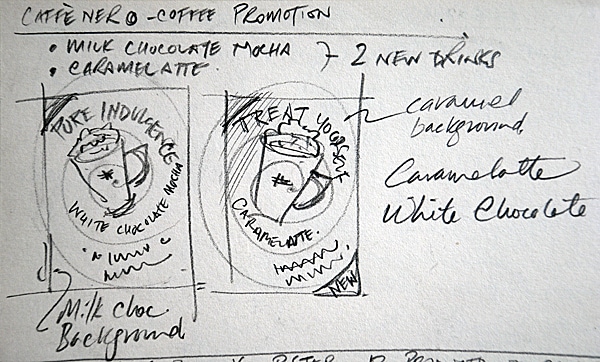 CAFFÈ NERO - COFFEE PROMOTION
• MILK CHOCOLATE MOCHA
• CARAMELATTE.
2 NEW DRINKS
PURE INDULGENCE
WHITE CHOCOLATE MOCHA
TREAT YOURSELF
CARAMELATTE.
NEW
caramel
background
Caramelatte
White Chocolate
Milk Choc
Background